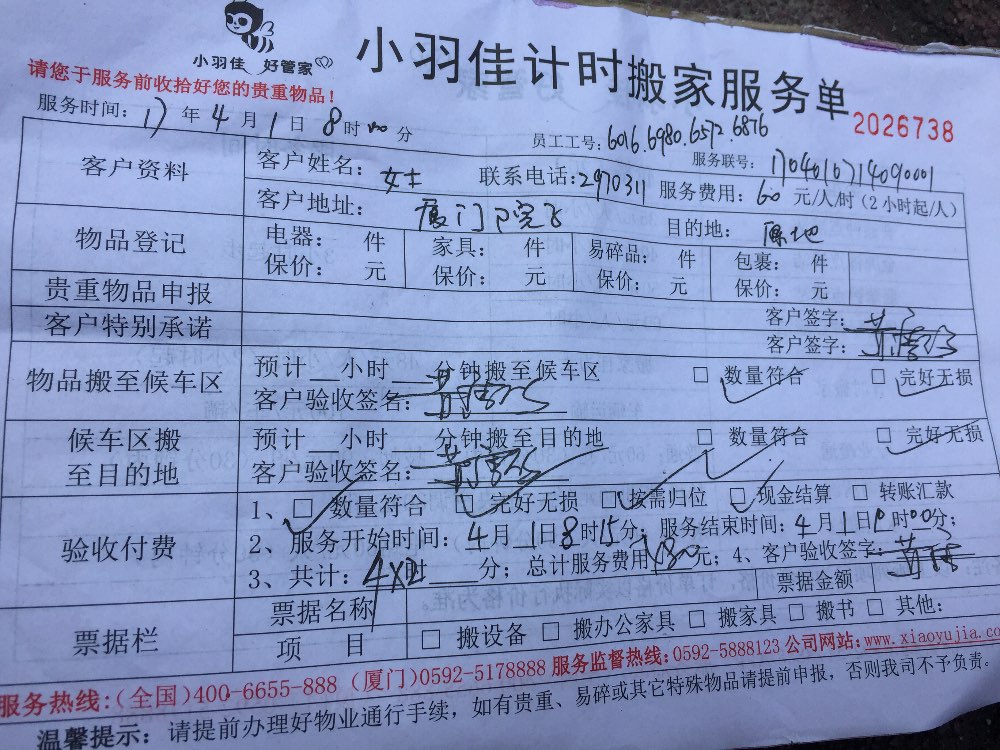 小羽佳 好管家
小羽佳计时搬家服务单
请您于服务前收拾好您的贵重物品！
2026738
服务时间：17年4月1日8时00分
员工工号：6016.6980.6572.6876
服务联号：1704010714090001
客户资料
客户姓名：女士 联系电话：2970311 服务费用：60元/人/时（2小时起/人）
客户地址：厦门 目的地：原地
物品登记
电器： 件 家具： 件 易碎品： 件 包裹： 件
保价： 元 保价： 元 保价： 元 保价： 元
贵重物品申报
客户签字：
客户特别承诺
客户签字：
物品搬至候车区
预计__小时___分钟搬至候车区 □ 数量符合 □ 完好无损
客户验收签名：
候车区搬至目的地
预计 小时 分钟搬至目的地 □ 数量符合 □ 完好无损
客户验收签名：
验收付费
1、□ 数量符合 □ 完好无损 □ 按需归位 □ 现金结算 □ 转账汇款
2、服务开始时间：4月1日8时15分；服务结束时间：4月1日 时00分；
3、共计：4x 时 分；总计服务费用 元；4、客户验收签字：
票据栏
票据名称 票据金额
项 目 □ 搬设备 □ 搬办公家具 □ 搬家具 □ 搬书 □ 其他：
服务热线：（全国）400-6655-888（厦门）0592-5178888 服务监督热线：0592-5888123 公司网站：www.xiaoyujia.com
温馨提示：请提前办理好物业通行手续，如有贵重、易碎或其它特殊物品请提前申报，否则我司不予负责。